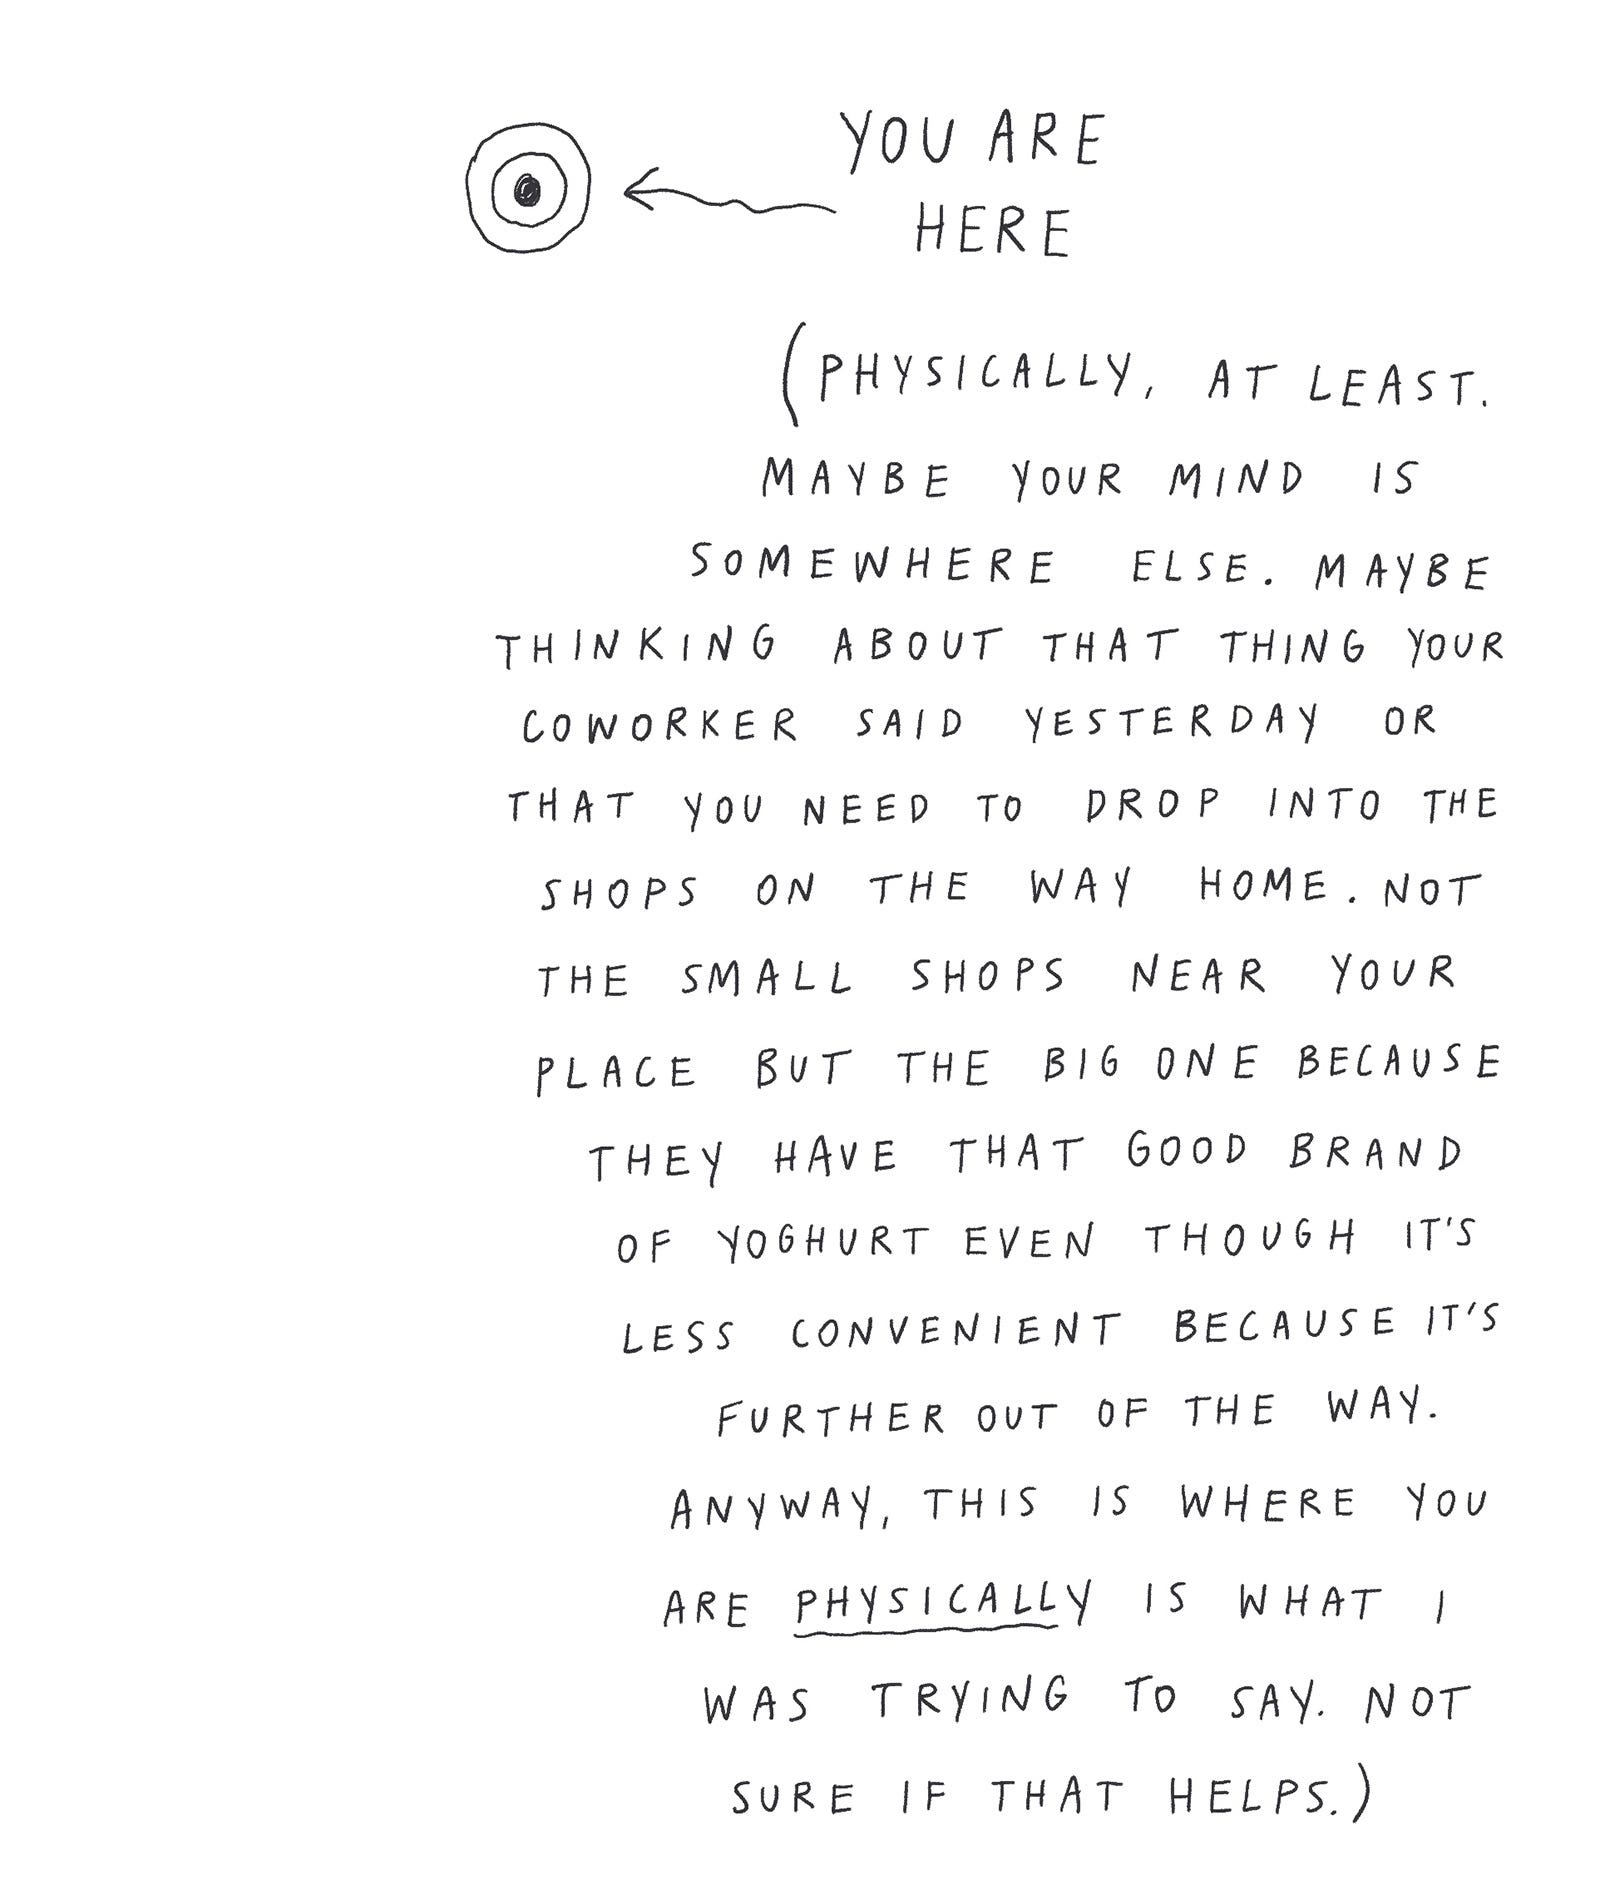 YOU ARE
HERE
(PHYSICALLY, AT LEAST.
MAYBE YOUR MIND IS
SOMEWHERE ELSE. MAYBE
THINKING ABOUT THAT THING YOUR
COWORKER SAID YESTERDAY OR
THAT YOU NEED TO DROP INTO THE
SHOPS ON THE WAY HOME. NOT
THE SMALL SHOPS NEAR YOUR
PLACE BUT THE BIG ONE BECAUSE
THEY HAVE THAT GOOD BRAND
OF YOGHURT EVEN THOUGH IT'S
LESS CONVENIENT BECAUSE IT'S
FURTHER OUT OF THE WAY.
ANYWAY, THIS IS WHERE YOU
ARE PHYSICALLY IS WHAT I
WAS TRYING TO SAY. NOT
SURE IF THAT HELPS.)